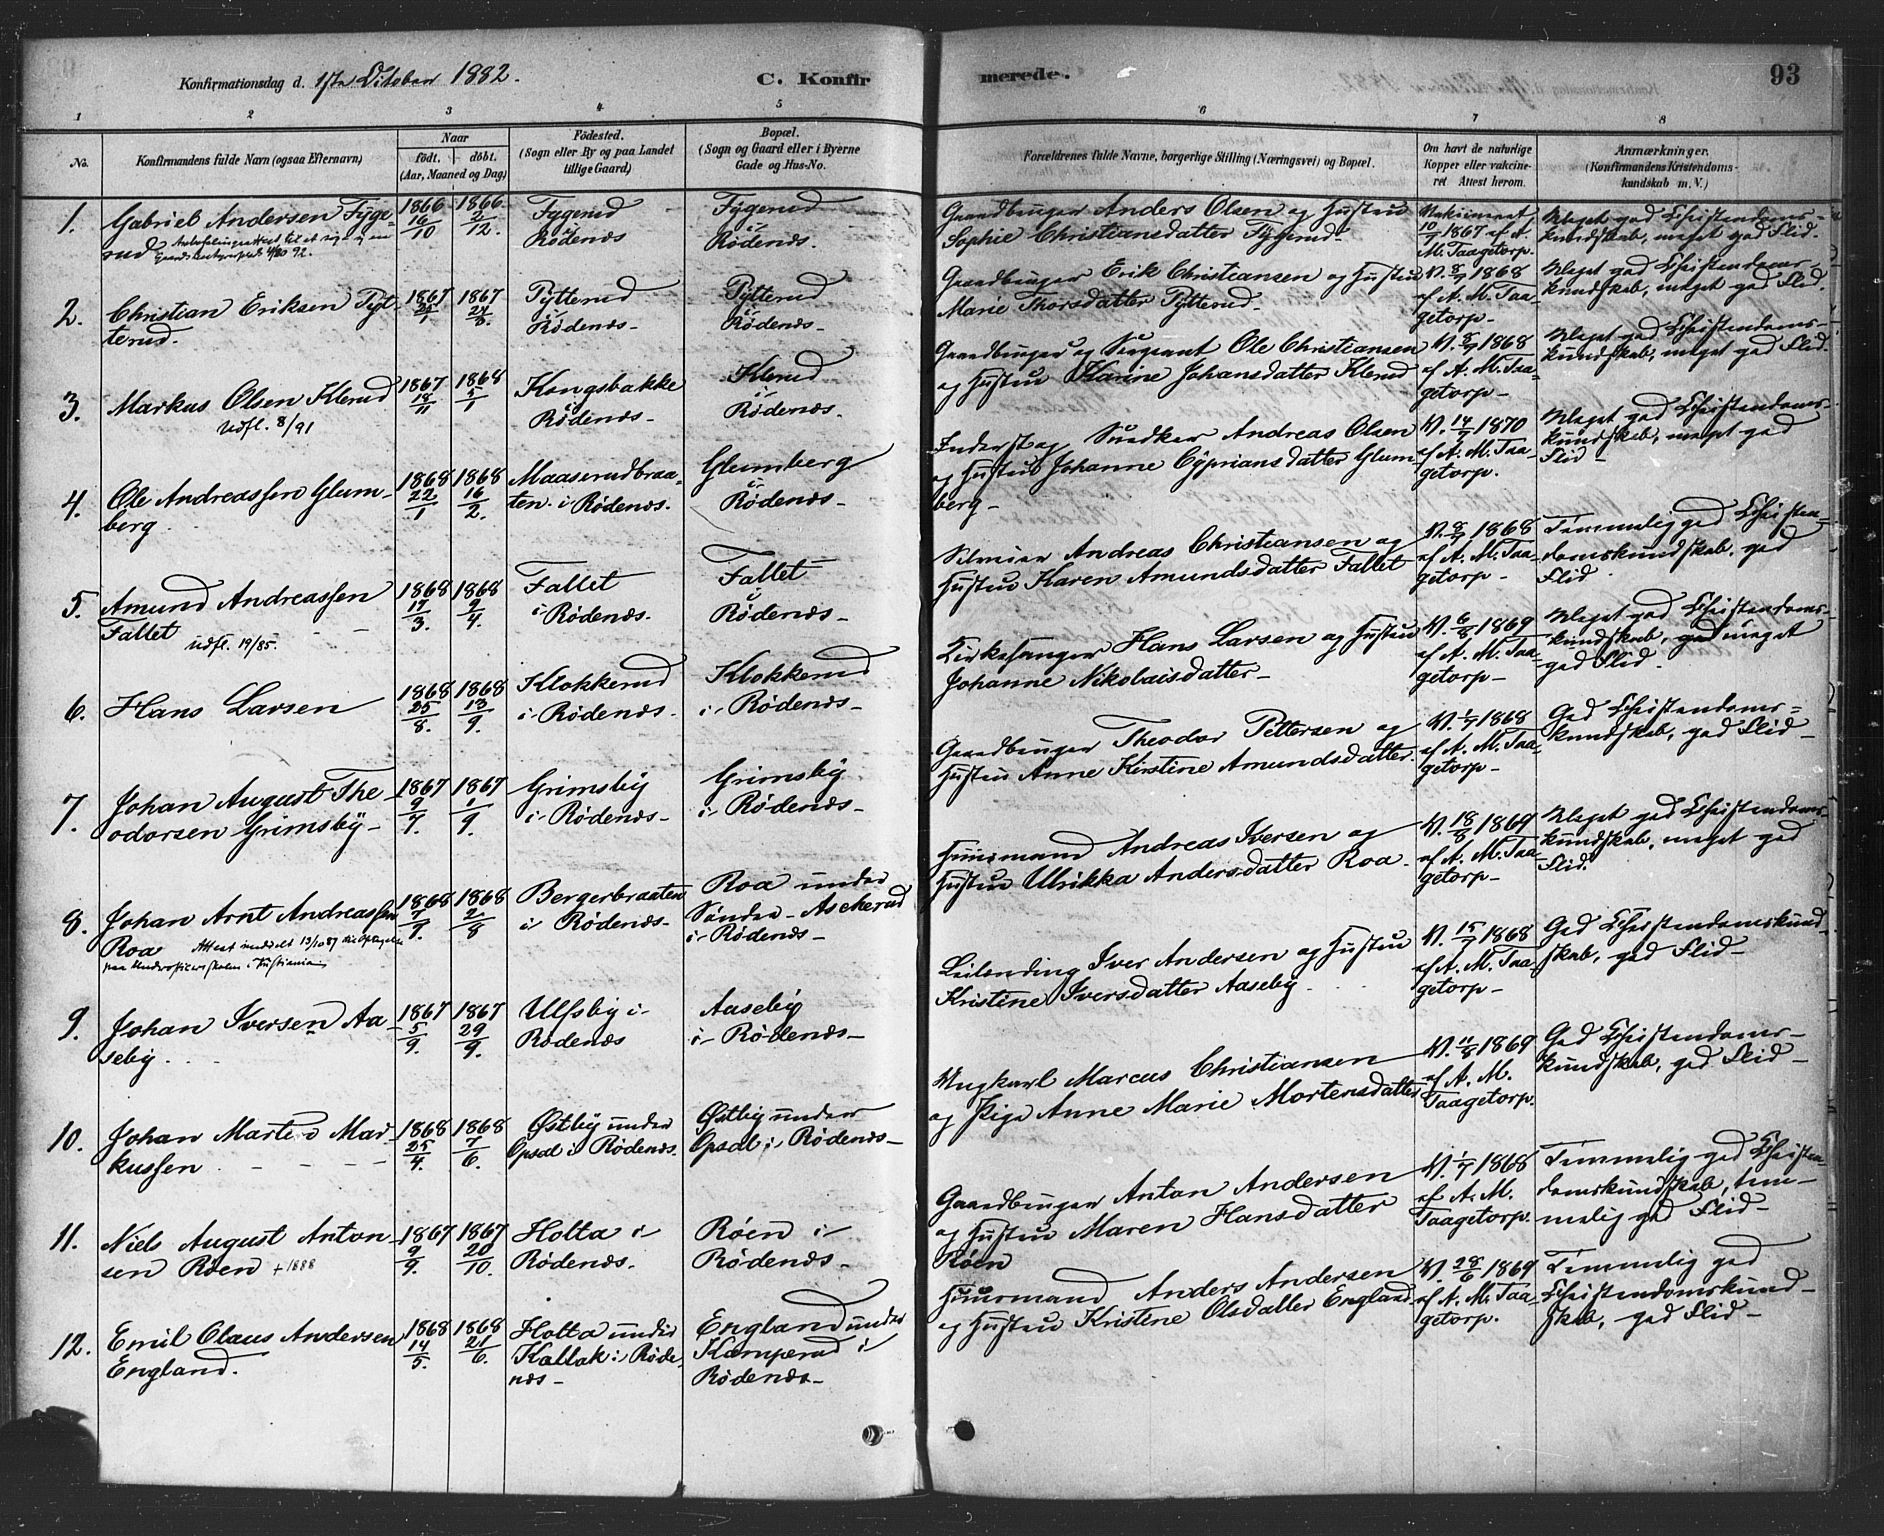 Konfirmationsdag d. 1ste October 1882.
C. Konfirmerede.
93
1 2 3 4 5 6 7 8
No.
Konfirmandens fulde Navn (ogsaa Efternavn)
Naar
födt. döbt.
(Aar, Maaned og Dag)
Födested.
(Sogn eller By og paa Landet
tillige Gaard)
Bopæl.
(Sogn og Gaard eller i Byerne
Gade og Hus-No.
Forældrenes fulde Navne, borgerlige Stilling (Næringsvei) og Bopæl.
Om havt de naturlige
Kopper eller vakcine-
ret Attest herom.
Anmærkninger.
(Konfirmandens Kristendoms-
kundskab m. V.)
1. Gabriel Andersen Tyge-
rud
1866 16/10
1866 2/12.
Tygerud
i Rödenæs
Tygerud
i Rödenæs.
Gaardbruger Anders Olsen og Hustru
Sophie Christiansdatter Tygerud.
Vakcineret
10/7 1867 af A.
M. Taagetorp.
Meget god Christendoms-
kundskab, meget god Flid.
2. Christian Eriksen Tyt-
terud.
1867 25/1
1867 24/3.
Tytterud
i Rödenæs-
Tytterud
i Rödenæs-
Gaardbruger Erik Christiansen og Hustru
Marie Thorsdatter Tytterud-
V. 8/7 1868
af A. M. Taa-
getorp-
Meget god Christendoms-
kundskab, meget god Flid.
3. Markus Olsen Klerud
Udfl. 8/91
1867 18/11
1868 5/1
Kongsbakke
i Rödenæs-
Klerud
i Rödenæs.
Gaardbruger og Sergeant Ole Christiansen
og Hustru Karine Johansdatter Klerud
V. 8/7 1868
af A. M. Taa-
getorp-
Meget god Christendoms-
kundskab, meget god Flid.
4. Ole Andreassen Glum-
berg.
1868 22/1
1868 16/2.
Maaserudbraa-
ten i Rödenæs.
Glumberg
i Rödenæs-
Inderst og Snedker Andreas Olsen
og Hustru Johanne Cypriansdatter Glum
berg-
V. 14/7 1870
af A. M. Taa-
getorp.
Meget god Christendoms-
kundskab, meget god
Flid-
5. Amund Andreassen
Fallet
udfl. 19/85.
1868 17/3.
1868 9/4.
Fallet
i Rödenæs.
Fallet
i Rödenæs-
Selveier Andreas Christiansen og
Hustru Karen Amundsdatter Fallet
V. 8/7 1868
af A. M. Taa-
getorp-
Temmelig god Christen-
domskundskab, god
Flid.
6. Hans Larsen
1868 25/8.
1868 13/9.
Klokkerud
i Rödenæs-
Klokkerud
i Rödenæs-
Kirkesanger Hans Larsen og Hustru
Johanne Nikolaisdatter-
V. 6/8 1869
af A. M. Taa-
getorp-
Meget god Christendoms-
kundskab, god meget
god Flid.
7. Johan August The
odorsen Grimsby-
1867 9/7.
1867 1/9.
Grimsby
i Rödenæs-
Grimsby
i Rödenæs-
Gaardbruger Theodor Pettersen og
Hustru Anne Kirstine Amundsdatter.
V. 1/7 1868
af A. M. Taa-
getorp-
God Christendoms-
kundskab, god Flid-
8. Johan Arnt Andreassen
Roa Attest meddelt 13/10 87 til Optagelse
paa Underofficerskolen i Kristiania
1868 7/7.
1868 2/8
Bergerbraaten
i Rödenæs-
Roa under
Söndre-Askerud
i Rödenæs-
Huusmand Andreas Iversen og
Hustru Ulrikka Andersdatter Roa-
V. 18/8 1869
af A. M. Taa-
getorp-
Meget god Christendoms-
kundskab, meget god
Flid.
9. Johan Iversen Aa
seby.
1867 5/9.
1867 29/9.
Ulfsby i
Rödenæs
Aaseby
i Rödenæs-
Leilænding Iver Andersen og Hustru
Kristine Iversdatter Aaseby.
V. 15/7 1868
af A. M. Taa-
getorp-
God Christendomskund-
skab, god Flid-
10. Johan Martin Mar-
kussen
1868 25/4.
1868 7/6.
Östby under
Opsal i Rödenæs.
Östby under
Opsal i Rödenæs-
Ungkarl Marcus Christiansen
og Pige Anne Marie Mortensdatter
V. 11/8 1869
af A. M.
Taagetorp.
God Christendoms-
kundskab, god Flid-
11. Niels August Anton
sen Röen +1888
1867 9/9.
1867 20/10.
Holta i
Rödenæs.
Röen i
Rödenæs-
Gaardbruger Anton Andersen
og Hustru Maren Hansdatter
Röen
V. 1/7 1868
af A. M.
Taagetorp.
Temmelig god Christen-
domskundskab, tem-
melig god Flid-
12. Emil Claus Andersen
England.
1868 14/5.
1868 21/6.
Holta under
Kallak i Röde-
næs-
England under
Kamperud i
Rödenæs-
Huusmand Anders Andersen
og Hustru Kristine Olsdatter England-
V. 28/6 1869
af A. M. Taa-
getorp.
Temmelig god
Christendomskund-
skab, god Flid-